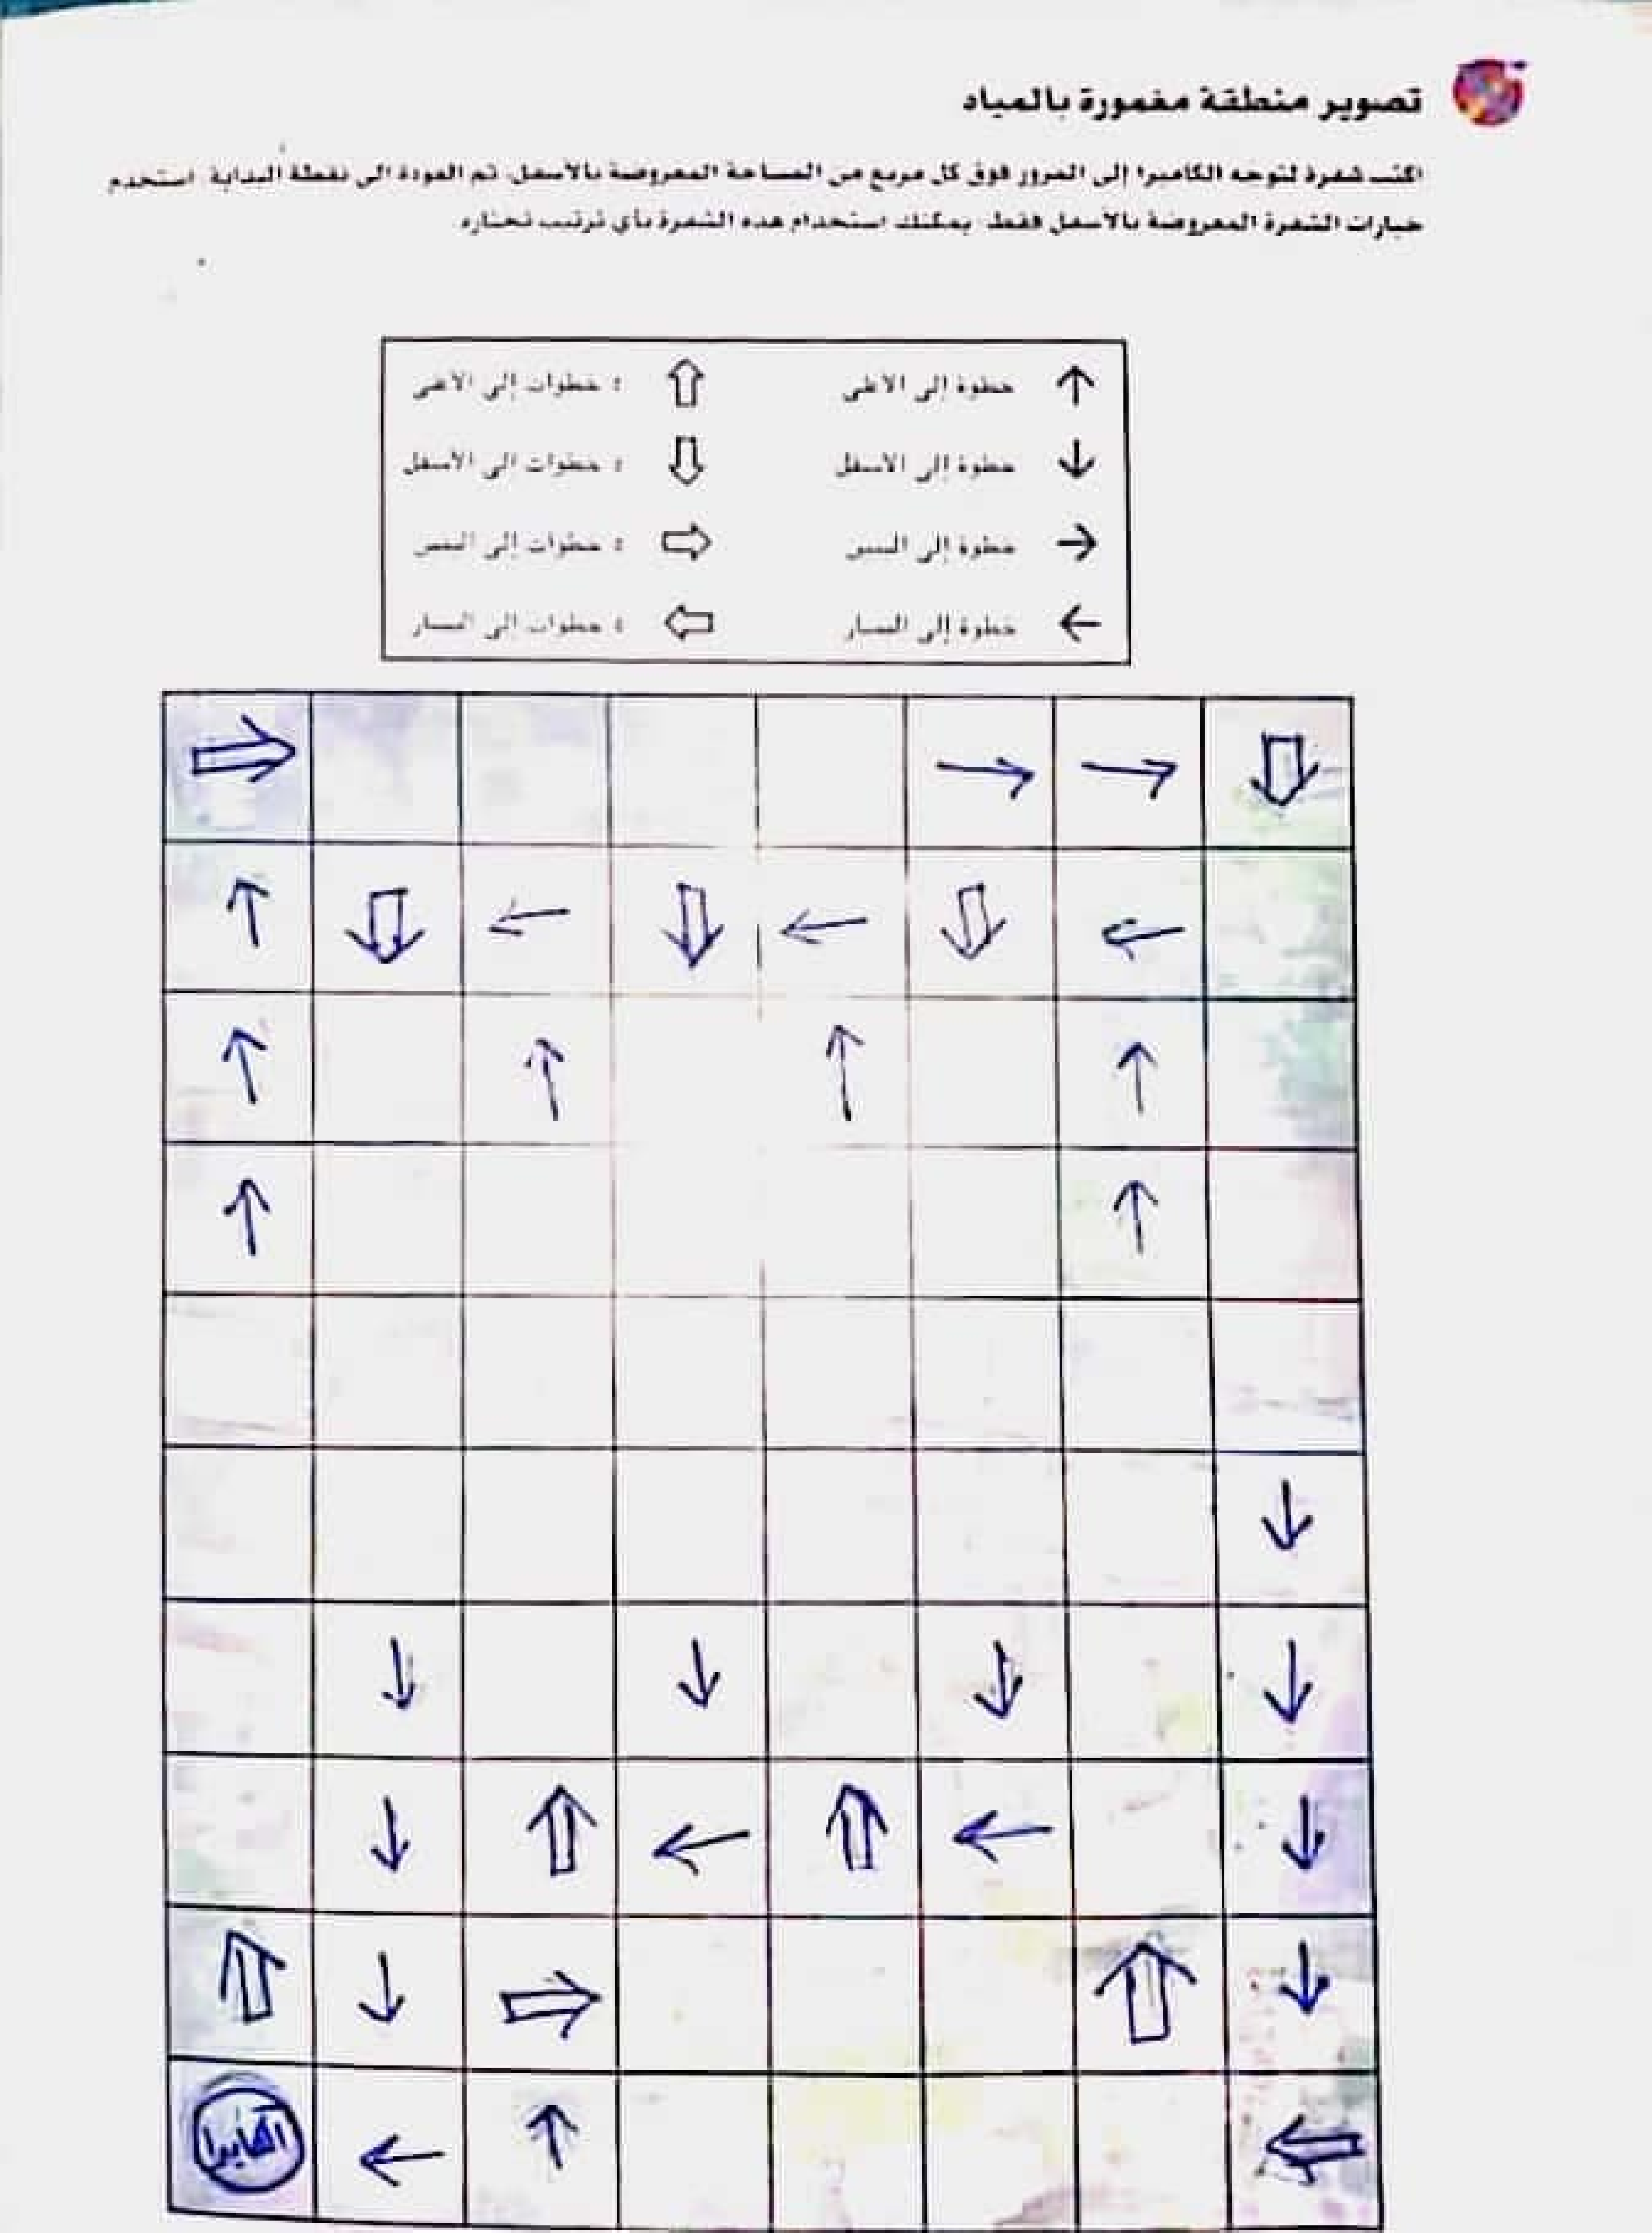 تصوير منطقة مغمورة بالمياه
اكتب شفرة لتوجه الكاميرا إلى المرور فوق كل مربع من المساحة المعروضة بالأسفل، ثم العودة الى نقطة البداية. استخدم
خيارات الشفرة المعروضة بالأسفل فقط. يمكنك استخدام هذه الشفرة بأي ترتيب تختاره.
↑ خطوة إلى الأعلى ⇧ خطوات إلى الأعلى
↓ خطوة إلى الأسفل ⇩ خطوات إلى الأسفل
→ خطوة إلى اليمين ⇨ خطوات إلى اليمين
← خطوة إلى اليسار ⇦ خطوات إلى اليسار
الكاميرا